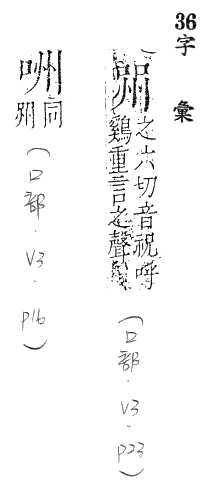 36字彙
喌之六切音祝呼
鷄重言之聲
(口部.V3.p23)
同
喌
(口部.V3.p16)